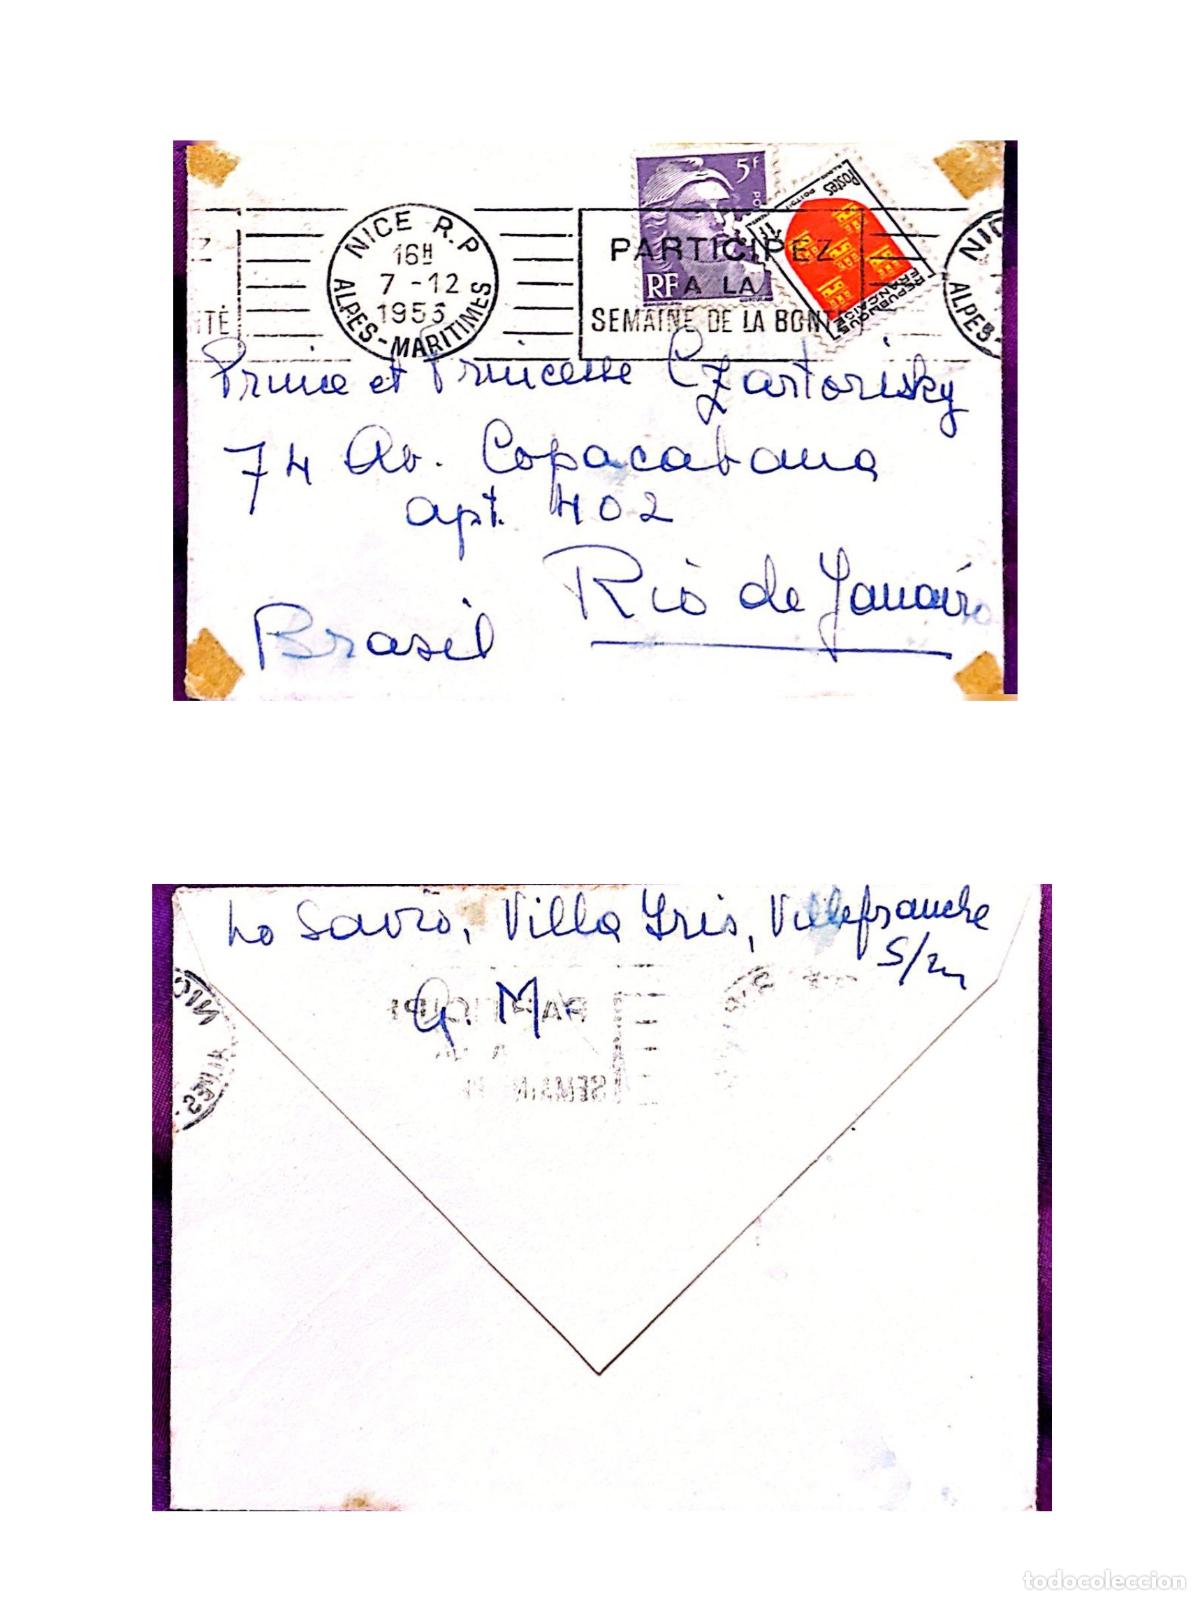 NICE R.P.
16H
7 -12
1953
ALPES-MARITIMES
5F
RF
PARTICIPEZ
A LA
SEMAINE DE LA BONTÉ
Postes
1F
REPUBLIQUE
FRANÇAISE
NIC
ALPES-
ITÉ
Prince et Princesse Czartorisky
74 Av. Copacabana
apt. 402
Rio de Janairo
Brasil
Lo Savio, Villa Iris, Villefranche
S/m
A. M.
todocoleccion